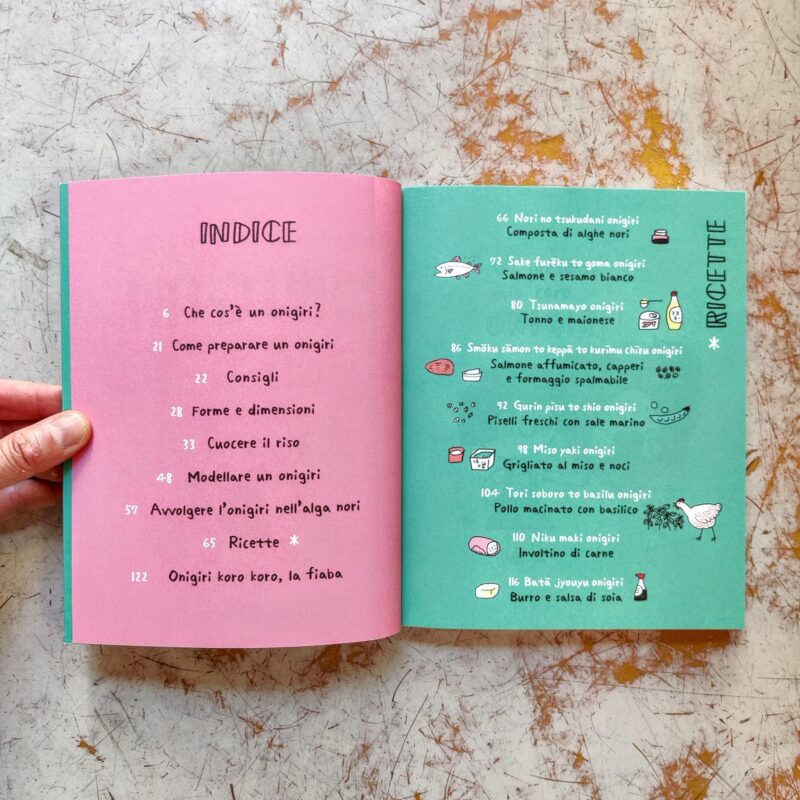 INDICE
6 Che cos'è un onigiri?
21 Come preparare un onigiri
22 Consigli
28 Forme e dimensioni
33 Cuocere il riso
48 Modellare un onigiri
57 Avvolgere l'onigiri nell'alga nori
65 Ricette *
122 Onigiri koro koro, la fiaba
RICETTE *
66 Nori no tsukudani onigiri
Composta di alghe nori
72 Sake furēku to goma onigiri
Salmone e sesamo bianco
80 Tsunamayo onigiri
Tonno e maionese
86 Smōku sāmon to keppā to kurīmu chīzu onigiri
Salmone affumicato, capperi
e formaggio spalmabile
92 Gurīn pīsu to shio onigiri
Piselli freschi con sale marino
98 Miso yaki onigiri
Grigliato al miso e noci
104 Tori soboro to basilu onigiri
Pollo macinato con basilico
110 Niku maki onigiri
Involtino di carne
116 Batā jyouyu onigiri
Burro e salsa di soia